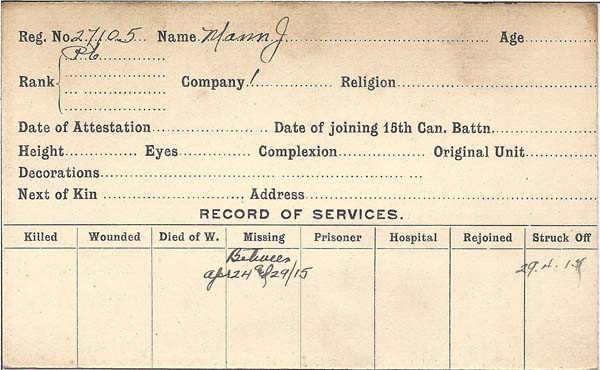 Reg. No 27105 Name Mann J. Age
Pte
Rank Company 1 Religion
Date of Attestation Date of joining 15th Can. Battn.
Height Eyes Complexion Original Unit
Decorations
Next of Kin Address
RECORD OF SERVICES.
Killed Wounded Died of W. Missing Prisoner Hospital Rejoined Struck Off
Between
Apr 24 & 29/15 29.4.15